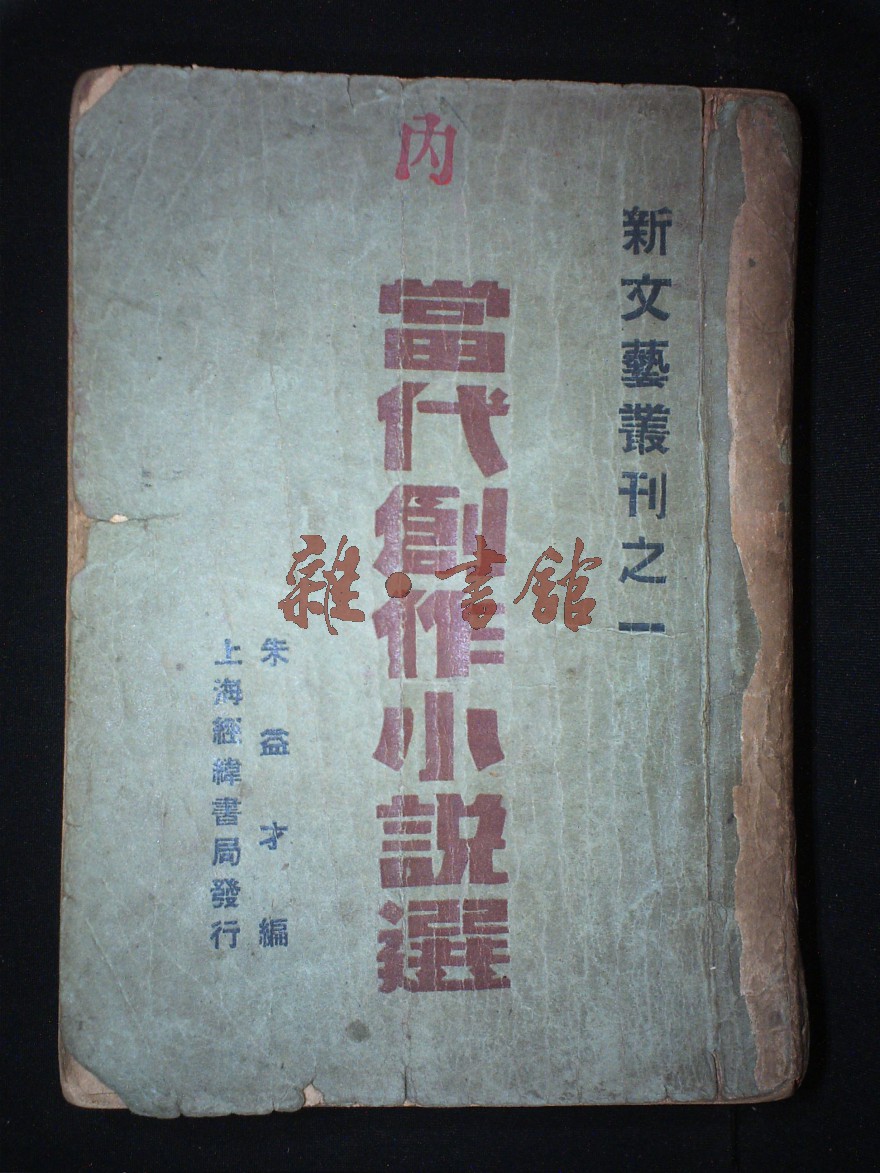 新文藝叢刊之一
內
當代創作小說選
朱益才編
上海經緯書局發行
雜·書館